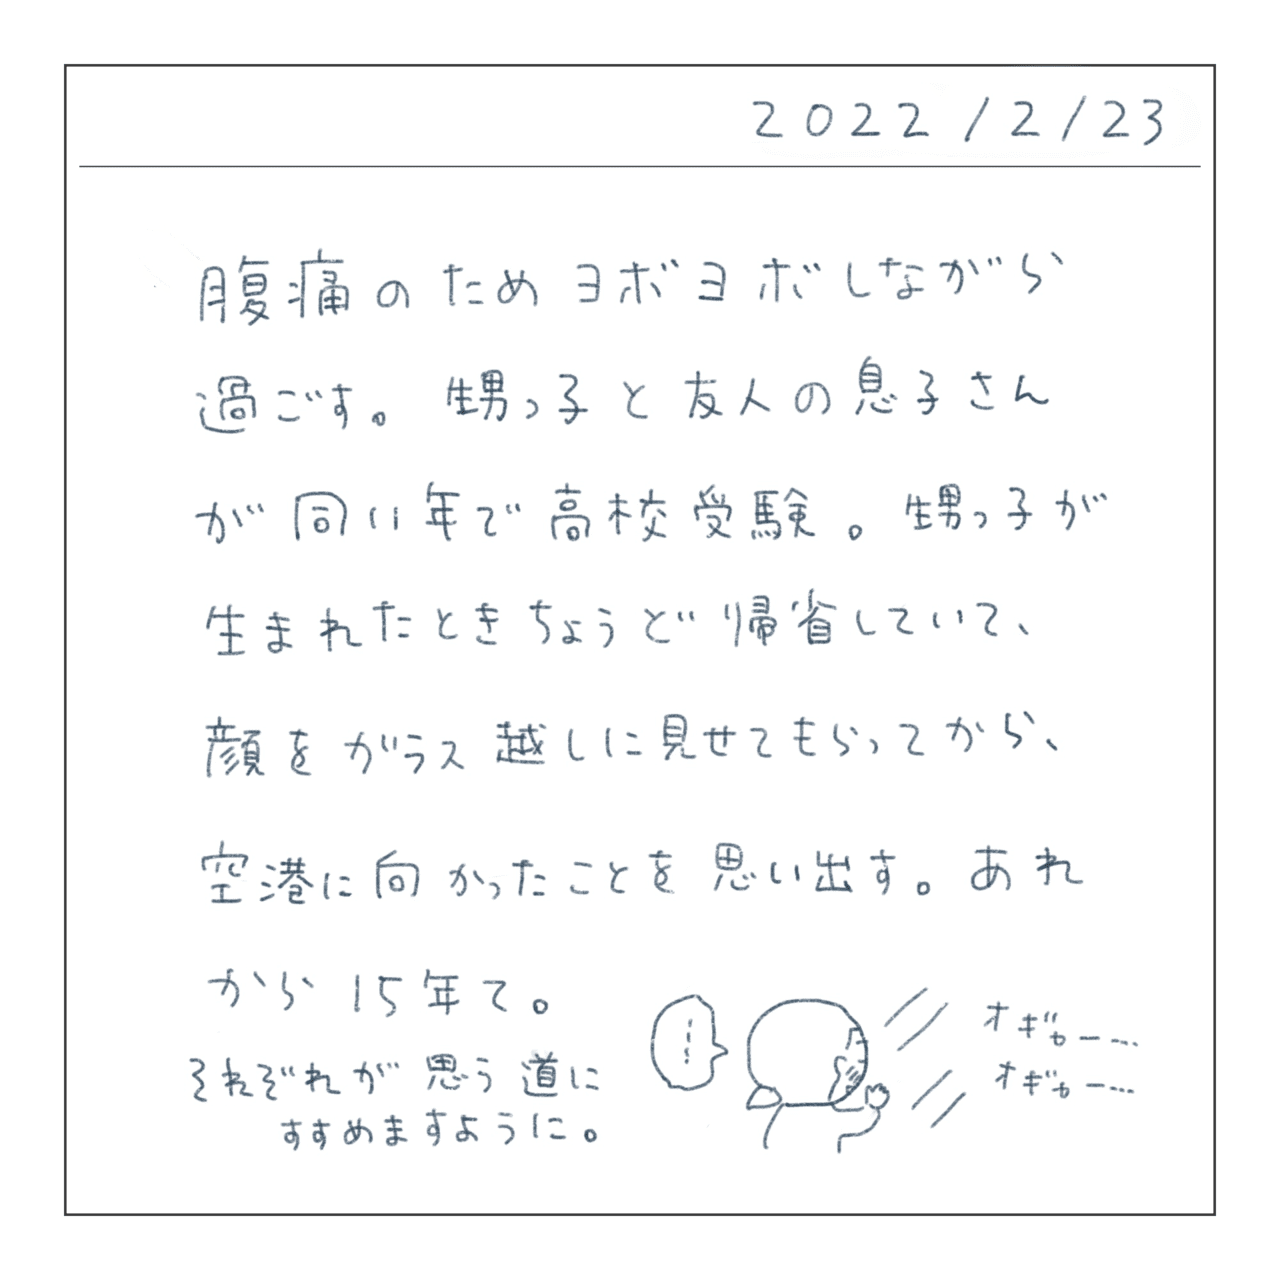 2022/2/23
腹痛のためヨボヨボしながら
過ごす。甥っ子と友人の息子さん
が同い年で高校受験。甥っ子が
生まれたときちょうど帰省していて、
顔をガラス越しに見せてもらってから、
空港に向かったことを思い出す。あれ
から15年て。
それぞれが思う道に
すすめますように。
オギャー…
オギャー…